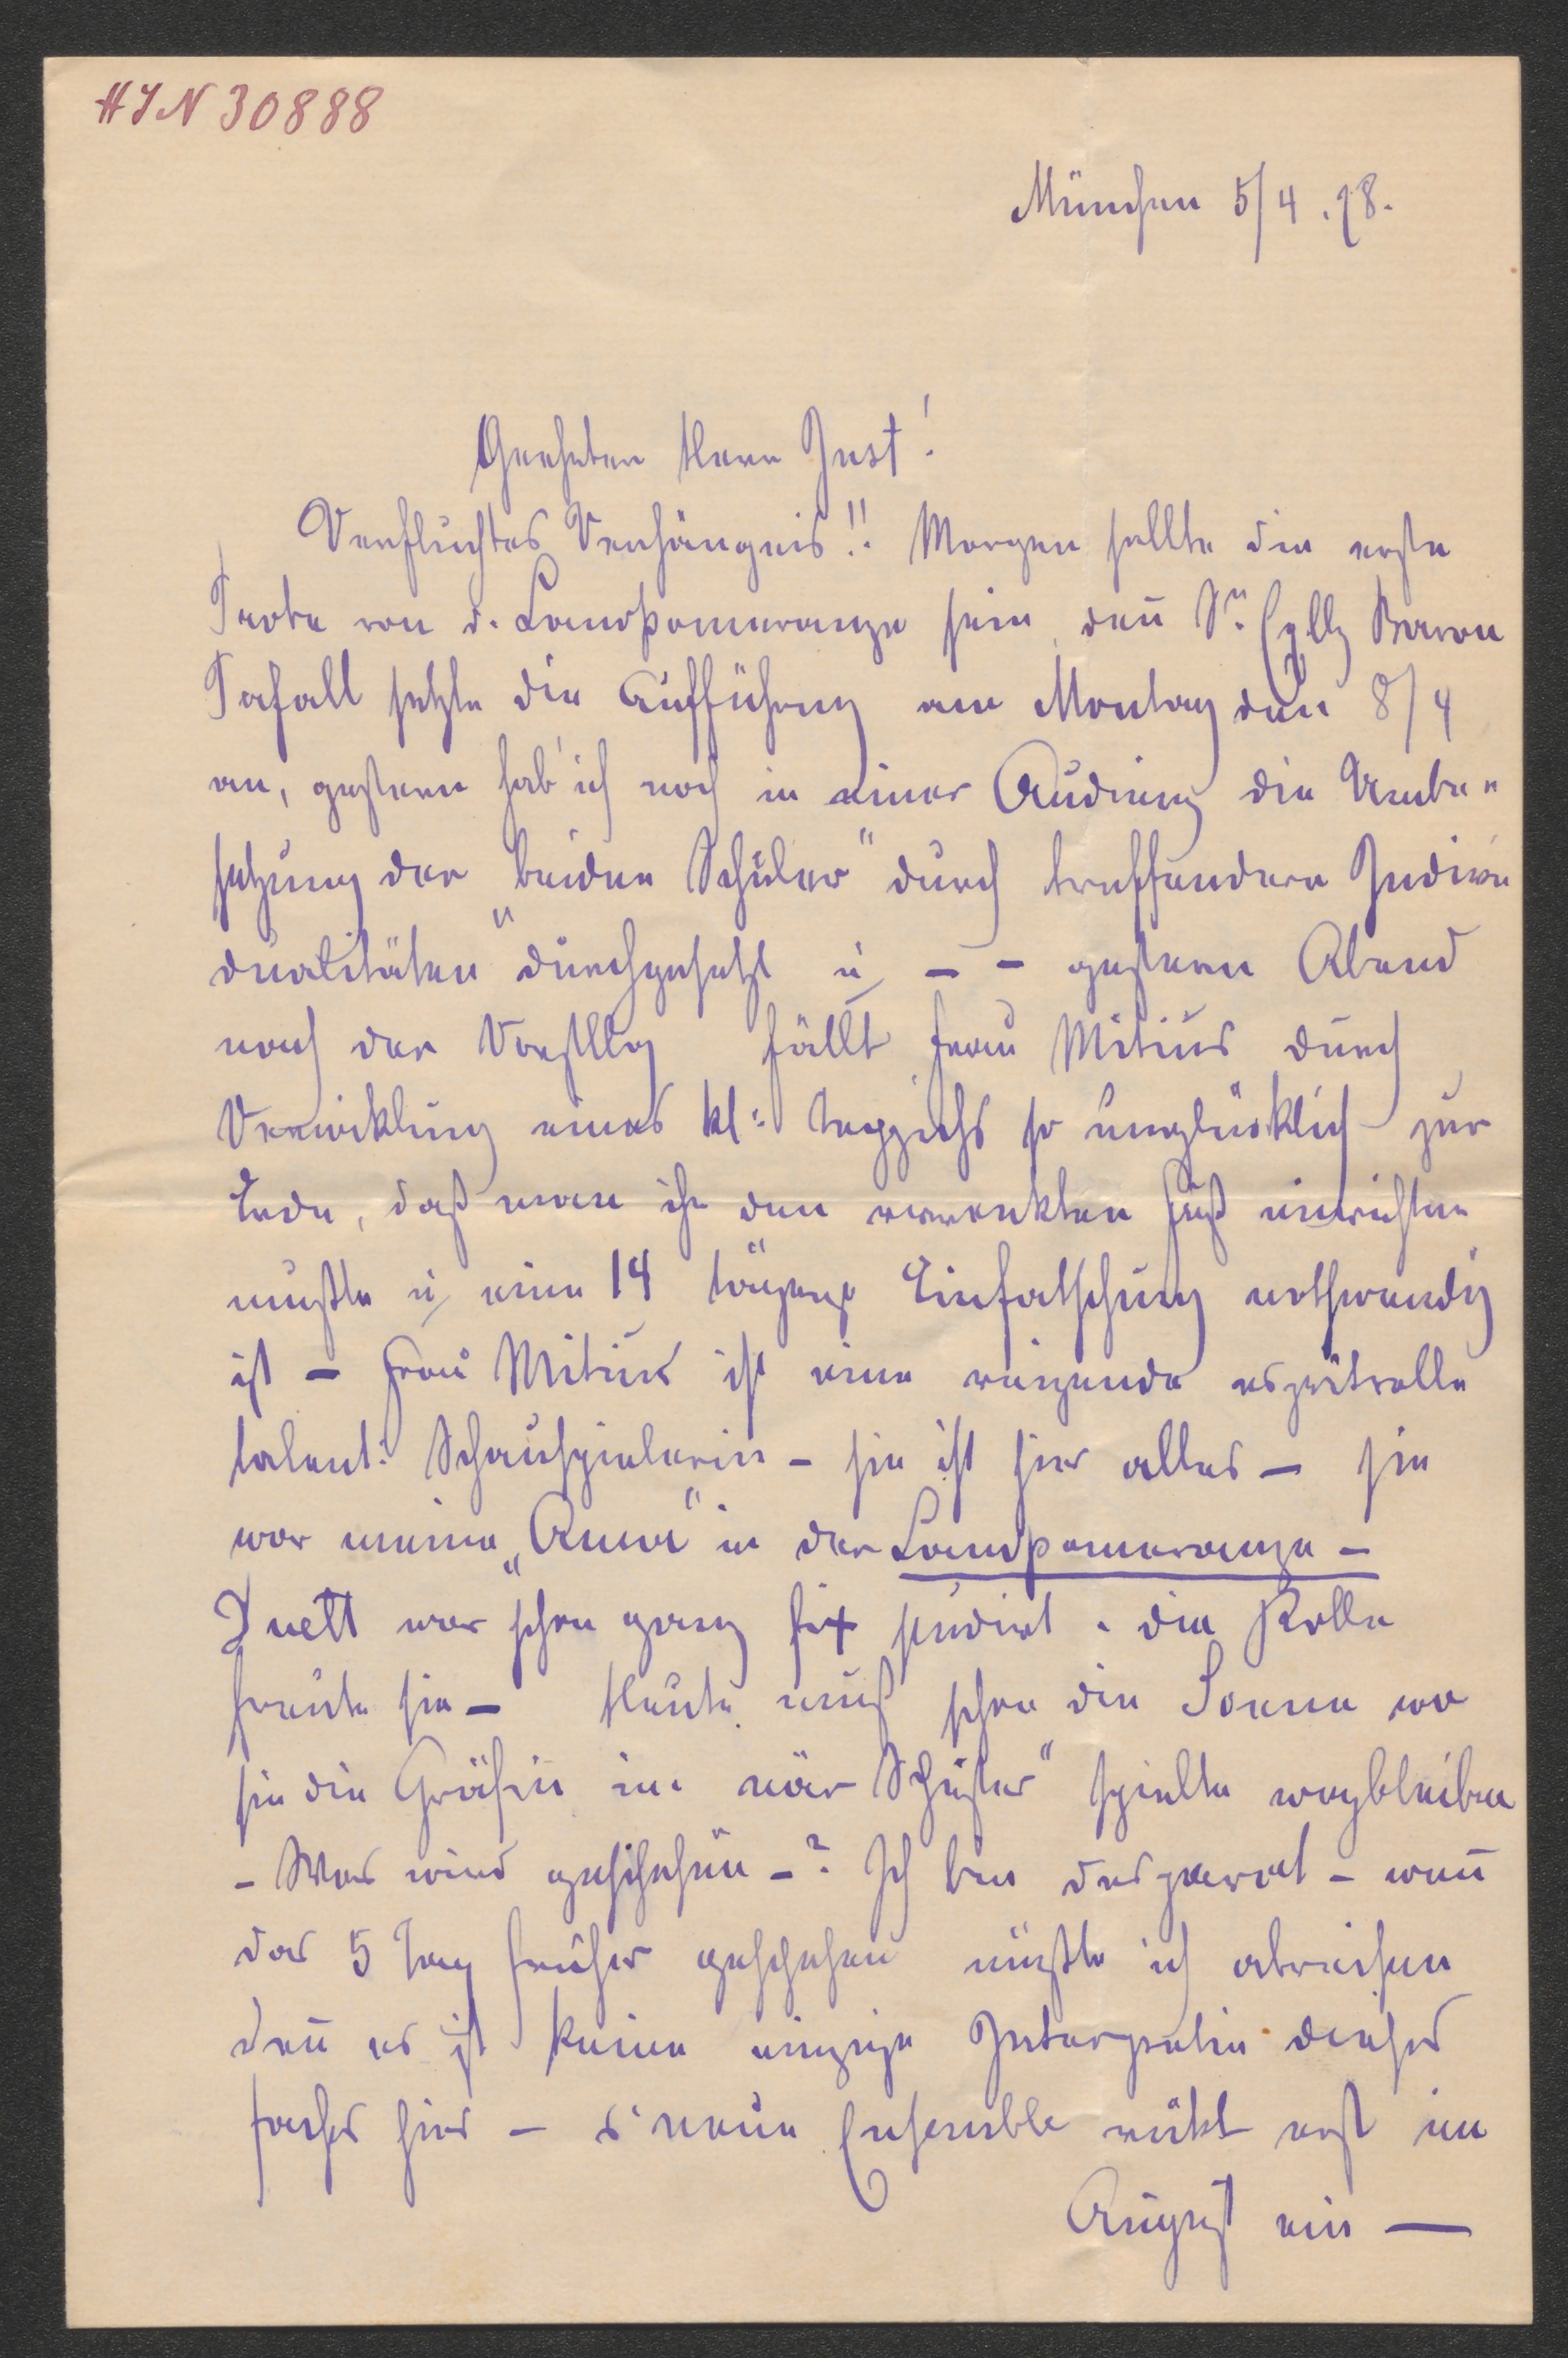 HIN 30888
München 5/4. 78.
Geehrter Herr Just!
Verfluchtes Verhängnis!! Morgen sollte die erste
Probe von d. Landpomeranze sein, deñ Sr. Exllz Baron
Perfall setzte die Aufführung am Montag den 8/4
an, gestern hab' ich noch in einer Audienz die Umbe„
setzung der "beiden Schüler" durch treffendere Indivi
dualitäten" durchgesetzt u – – gestern Abend
nach der Vorstllg fällt Frau Mitius durch
Verwicklung eines kl: Teppichs so unglücklich zur
Erde, daß man ihr den verrenkten Fuß einrichten
mußte u eine 14 tägige Einfatschung nothwendig
ist – Frau Mitius ist eine reizende espritvolle
talent: Schauspielerin – sie ist hier alles – sie
war meine „Anna" in der Landpomeranze –
Duett war schon ganz fix studirt. die Rolle
freute sie – Heute muß schon die Scene wo
sie die Gräfin im när Schuster" spielte wegbleiben
– Was wird geschehen –? Ich bin desparat – weñ
das 5 Tag früher geschehen müßte ich abreisen
deñ es ist keine einzige Interpretin dieses
Faches hier – s' neue Ensemble rückt erst im
August ein —